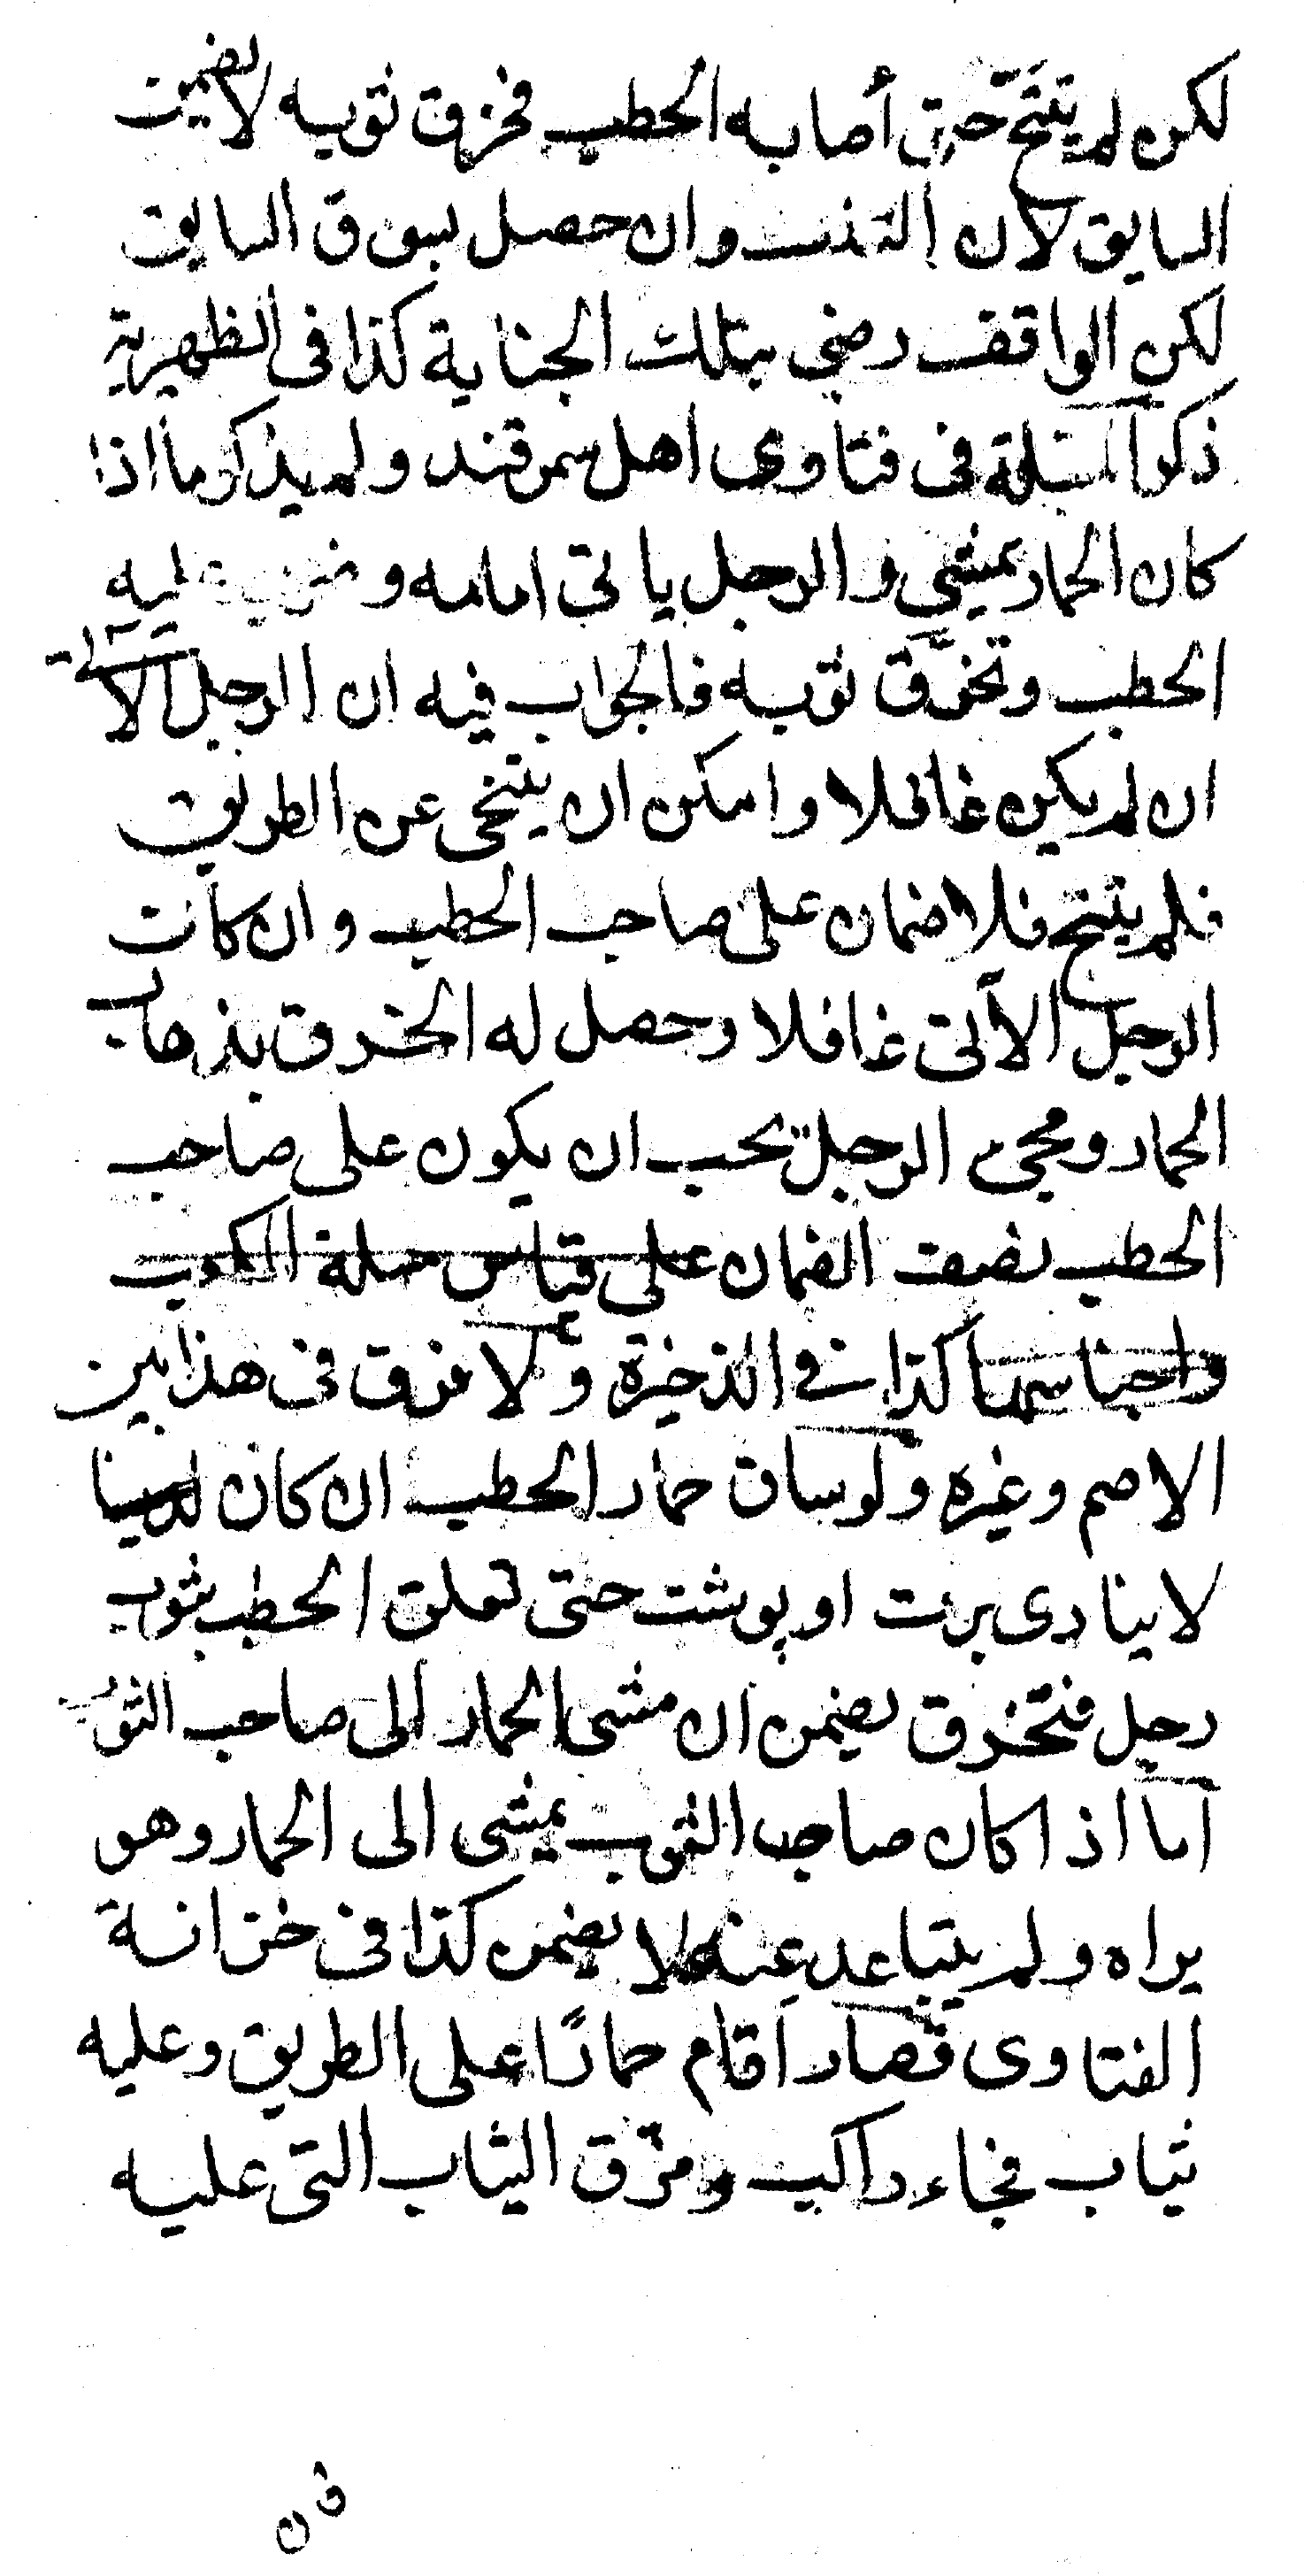 لكن لم يتنح حتى أصابه الحطب فخرق ثوبه لا يضمن
السايق لان وان حصل بسوق السايق
لكن الواقف رضي بتلك الجناية كذا في الظهيرية
ذكر المسئلة في فتاوى اهل سمرقند ولم يذكر ما اذا
كان الحمار يمشي والرجل ياتى امامه و عليه
الحطب وتخرّق ثوبه فالجواب فيه ان الرجل الاتى
ان لم يكن غافلا وامكن ان يتنحى عن الطريق
فلم يتنح فلا ضمان على صاحب الحطب وان كان
الرجل الآتى غافلا وحصل له الخرق بذهاب
الحمار ومجئ الرجل يجب ان يكون على صاحب
الحطب نصف الضمان على قياس مسلة
واجناسها كذا في الذخيرة ولا فرق في هذا بين
الاصم وغيره ولو ساق حمار الحطب ان كان
لا ينادى برت او بوشت حتى تعلق الحطب بثوب
رجل فتخرق يضمن ان مشى الحمار الى صاحب الثوب
اما اذا كان صاحب الثوب يمشى الى الحمار وهو
يراه ولم يتباعد عنه لا يضمن كذا في خزانة
الفتاوى قصار اقام حمارًا على الطريق وعليه
ثياب فجاء راكب ومزّق الثياب التى عليه